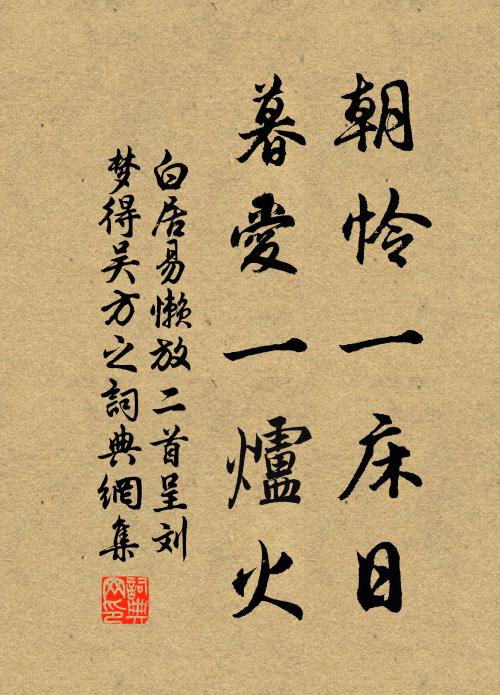 朝怜一床日
暮愛一爐火
白居易懒放二首呈刘
梦得吴方之詞典網集
詞典
网印